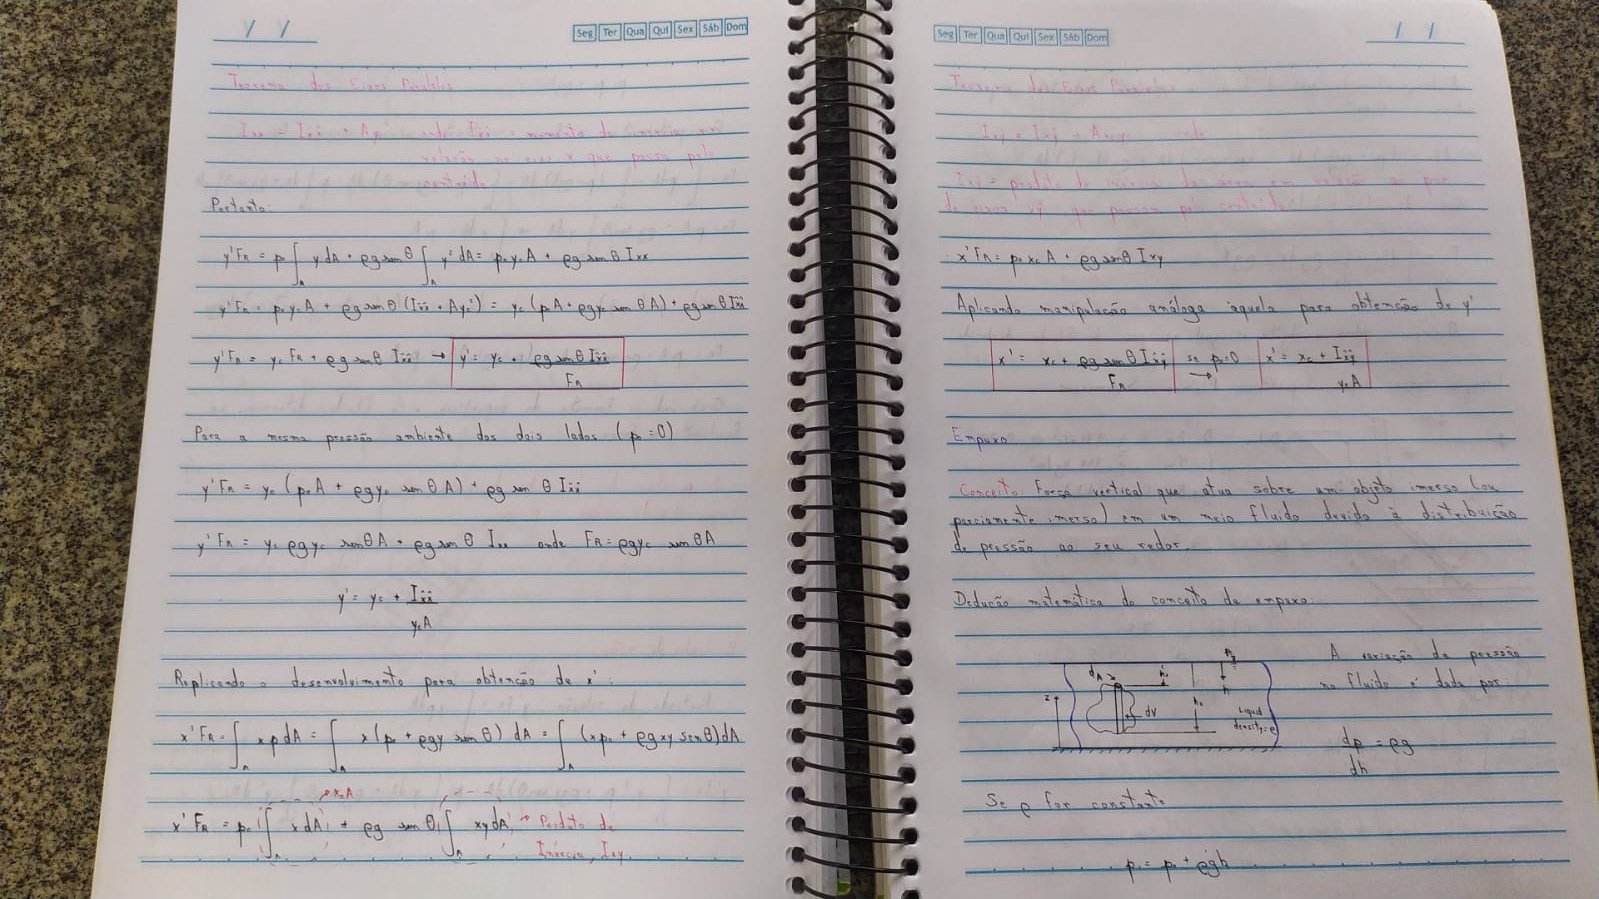 / /
Seg Ter Qua Qui Sex Sáb Dom
Teorema dos Eixos Paralelos
Ixx = Ix̂x̂ + Ayc² onde Ix̂x̂ = momento de inércia em
relação ao eixo x que passa pelo
centróide
Portanto:
y'FR = p₀∫A y dA + ρg sen θ ∫A y² dA = p₀ yc A + ρg sen θ Ixx
y'FR = p₀ yc A + ρg sen θ (Ix̂x̂ + Ayc²) = yc (p₀A + ρgyc sen θ A) + ρg sen θ Ix̂x̂
y'FR = yc FR + ρg sen θ Ix̂x̂ → y' = yc + ρg sen θ Ix̂x̂
FR
Para a mesma pressão ambiente dos dois lados (p₀ = 0)
y'FR = yc (p₀A + ρgyc sen θ A) + ρg sen θ Ix̂x̂
y'FR = yc ρgyc sen θ A + ρg sen θ Ixx onde FR = ρgyc sen θ A
y' = yc + Ix̂x̂
yc A
Replicando o desenvolvimento para obtenção de x':
x'FR = ∫A x p dA = ∫A x (p₀ + ρgy sen θ) dA = ∫A (xp₀ + ρgxy sen θ) dA
xcA
x'FR = p₀ ∫A x dA + ρg sen θ ∫A xy dA → Produto de
Inércia, Ixy
Seg Ter Qua Qui Sex Sáb Dom
/ /
Teorema dos Eixos Paralelos
Ixy = Ix̂ŷ + Axcyc onde
Ix̂ŷ = produto de inércia da área em relação ao par
de eixos xy que passam pelo centróide
x'FR = p₀ xc A + ρg sen θ Ixy
Aplicando manipulação análoga àquela para obtenção de y'
x' = xc + ρg sen θ Ix̂ŷ se p₀=0 → x' = xc + Ix̂ŷ
FR yc A
Empuxo
Conceito: Força vertical que atua sobre um objeto imerso (ou
parciamente imerso) em um meio fluido devido à distribuição
de pressão ao seu redor.
Dedução matemática do conceito de empuxo:
A variação da pressão
no fluido é dada por:
dA h₁ p₀ h
z dV h₂ Liquid
density = ρ
dp = ρg
dh
Se ρ for constante
p = p₀ + ρgh